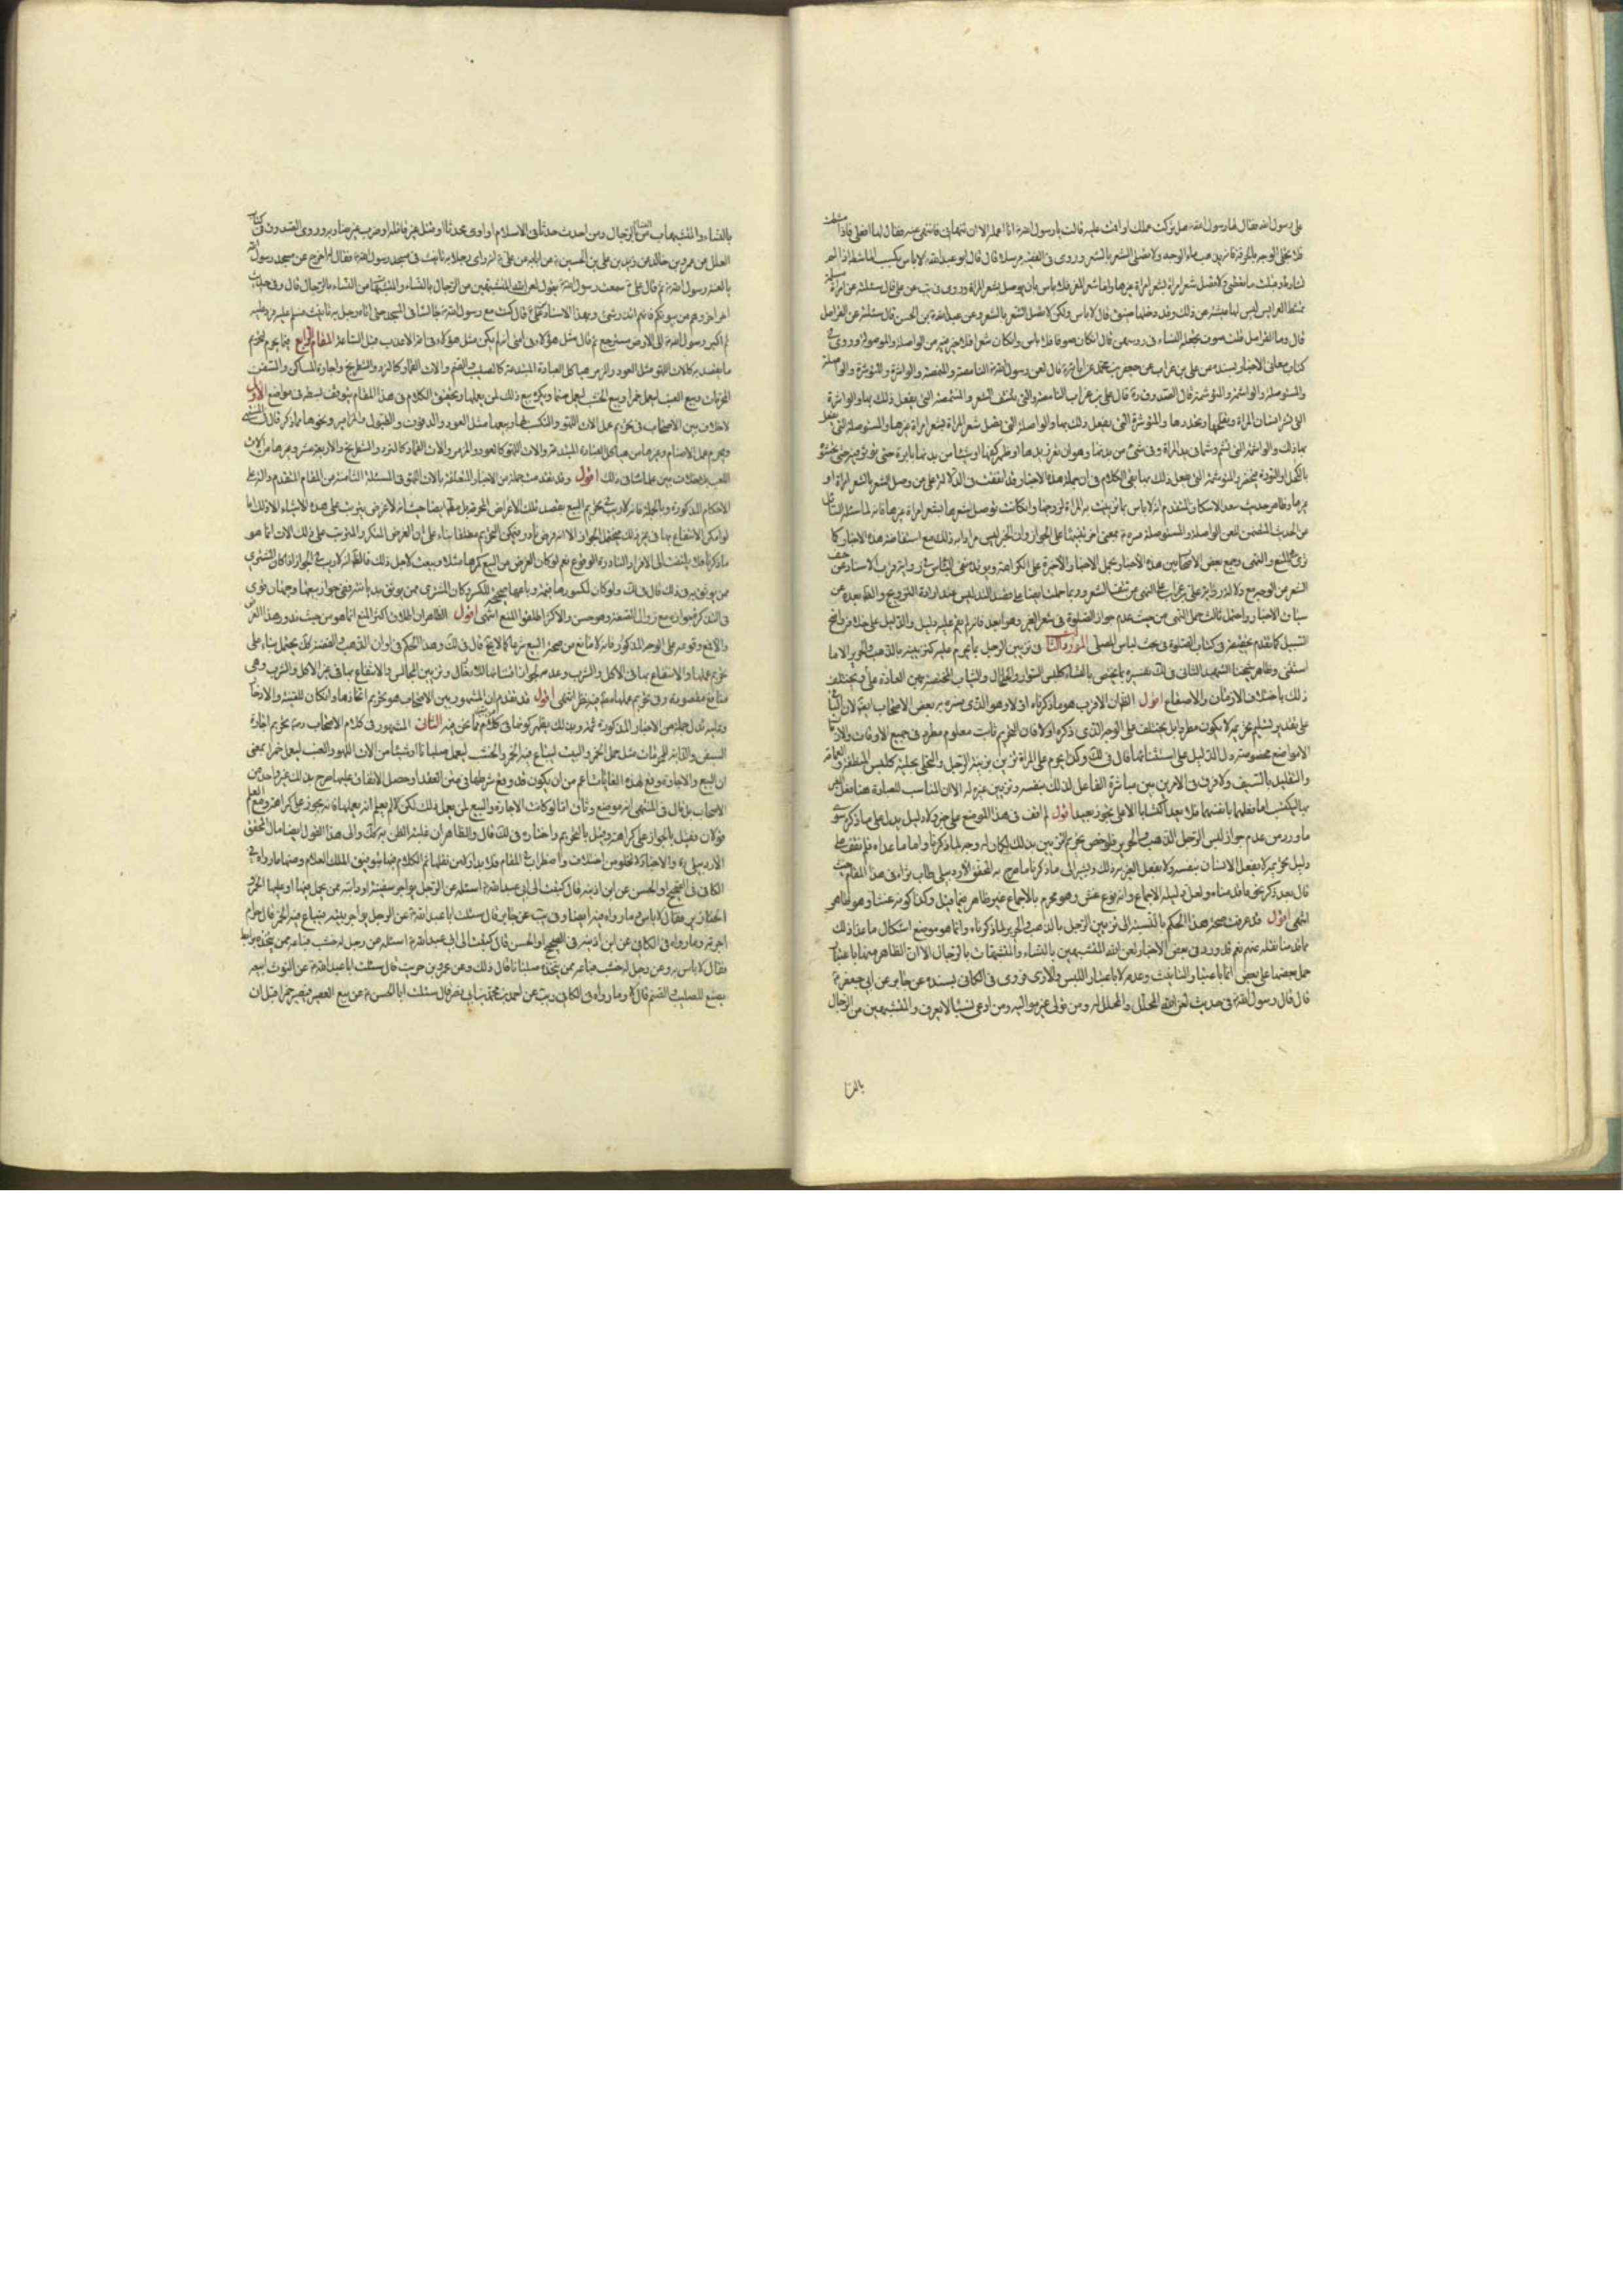 على رسول الله فقال لها رسول الله ص هل تركت عملك او انت عليه قالت يا رسول الله ص انا اعمله الا ان تنهانى فانتهى عنه فقال لها افعلى فاذا مشطت
فلا تجلى الوجه بالخرقة فانه يذهب بماء الوجه ولا تصلى الشعر بالشعر وروى فى الفقيه مرسلا قال قال ابو عبد الله ع لا باس بكسب الماشطة اذا لم
تشارط وقبلت ما تعطى ولا تصل شعر المراة بشعر امراة غيرها واما شعر المعز فلا باس بان يوصل بشعر المراة وروى فى يب عن على قال سئلته عن امراة مسلمة
تمشط العرايس ليس لها معيشة غير ذلك وقد دخلها ضيق قال لا باس ولكن لا تصل الشعر بالشعر وعن عبد الله بن الحسن قال سئلته عن القرامل
قال وما القرامل قلت صوف تجعله النساء فى رؤسهن قال ان كان صوفا فلا باس وان كان شعرا فلا خير فيه من الواصلة والموصولة وروى فى
كتاب معانى الاخبار بسنده عن على بن غراب عن جعفر بن محمد عن ابائه ع قال لعن رسول الله ص النامصة والمنتمصة والواشرة والموتشرة والواصلة
والمستوصلة والواشمة والموتشمة قال الصدوق ره قال على بن غراب النامصة التى تنتف الشعر والمنتمصة التى يفعل ذلك بها والواشرة
التى تشر اسنان المراة وتفلجها وتحددها والموتشرة التى يفعل ذلك بها والواصلة التى تصل شعر المراة بشعر امراة غيرها والمستوصلة التى يفعل
بها ذلك والواشمة التى تشم وشما فى يد المراة وفى شىء من بدنها وهو ان تغرز يدها او ظهر كفها او شيئا من بدنها بابرة حتى تؤثر فيه ثم تحشوه
بالكحل او النورة فتخضر والموتشمة التى يفعل ذلك بها بقى الكلام فى ان جملة هذه الاخبار وقد اتفقت فى الدلالة على من وصل الشعر بالشعر امراة او
غيرها وظاهر حديث سعد الاسكاف المتقدم انه لا باس بما تزينت به المراة لزوجها وان كانت توصل شعرها بشعر امراة غيرها فانه لما سئله السائل
من الحديث المتضمن للعن الواصلة والمستوصلة فسره ع بمعنى اخر تنبيها على الجواز وان الخبر ليس مراد به ذلك مع استفاضة هذه الاخبار كما
ترى بالمنع والنهى وجمع بعض الاصحاب بين هذه الاخبار بحمل الاخبار الاخيرة على الكراهة
سياق الاخبار واحتمل ثالث حمل النهى من حيث عدم جواز الصلوة فى شعر الغير وهو ابعد فانه لم يقم عليه دليل والدليل على خلافه واضح
السبيل كما تقدم تحقيقه فى كتاب الصلوة فى بحث لباس المصلى المورد الثالث فى تزيين الرجل بما يحرم عليه كتزيينه بالذهب والحرير الا ما
استثنى وظاهر شيخنا الشهيد الثانى فى لك تفسيره بما يختص بالنساء كلبس السوار والخلخال والثياب المختصة بهن فى العادة قال ويختلف
ذلك باختلاف الازمان والاصقاع اقول الظاهر ان الاقرب هو ما ذكرناه اولا وهو الذى صرح به بعض الاصحاب ايضا لان الثانى
على تقدير تسليم تحريمه لا يكون مطردا بل يختلف على الوجه الذى ذكره اولا فان التحريم ثابت معلوم مطرد فى جميع الاوقات والازمان
الا مواضع مخصوصة دل الدليل على استثنائها قال فى لك وكذا يحرم على المراة تزيين بزينة الرجل والتحلى بحليته كلبس المنطقة والعمامة
والتقليد بالسيف ولا فرق فى الامرين بين مباشرة الفاعل لذلك بنفسه وتزيين غيره له الا ان المناسب للعبارة هنا فعل الغير
بهما ليكتسب اما فعلهما بانفسهما فلا يعد اكتسابا الا على تجوز بعيد اقول لم اقف فى هذا الموضع على خبر ولا دليل يدل على ما ذكره سوى
ما ورد من عدم جواز لبس الرجل الذهب والحرير فلو خص تحريم التزيين بذلك لكان له وجه لما ذكرنا واما ما عداه فلم نقف على
دليل تحريمه لا بفعل الانسان بنفسه ولا بفعل الغير به ذلك ويشير الى ما ذكرنا ما صرح به المحقق الاردبيلى طاب ثراه فى هذا المقام حيث
قال بعد ذكر نحو ما قدمناه ولعل دليله الاجماع وانه نوع غش وهو محرم بالاجماع غير ظاهر فيما قيل وكذا كونه غشا وهو ظاهر
انتهى اقول قد عرفت صحة هذا الحكم بالنسبة الى تزيين الرجل بالذهب والحرير لما ذكرناه وانما هو موضع اشكال ما عدا ذلك
مما قدمنا نقله عنهم نعم قد ورد فى بعض الاخبار لعن الله المتشبهين بالنساء والمتشبهات بالرجال الا ان الظاهر منها باعتبار
حمل بعضها على بعض انما باعتبار التانيث وعدمه لا باعتبار اللبس والزى فروى فى الكافى بسنده عن جابر عن ابى جعفر ع
قال قال رسول الله ص فى حديث لعن الله المحلل والمحلل له ومن تولى غير مواليه ومن ادعى نسبا لا يعرف والمتشبهين من الرجال
بالنسا
بالنساء والمتشبهات من النساء بالرجال ومن احدث حدثا فى الاسلام او اوى محدثا او قتل غير قاتله او ضرب غير ضاربه وروى الصدوق فى كتاب
العلل عن عمرو بن خالد عن زيد بن على بن الحسين ع عن ابائه عن على ع انه راى رجلا به تانيث فى مسجد رسول الله ص فقال له اخرج من مسجد رسول الله
يا لعنة رسول الله ص ثم قال على ع سمعت رسول الله ص يقول لعن الله المتشبهين من الرجال بالنساء والمتشبهات من النساء بالرجال قال وفى حديث
اخر اخرجوهم من بيوتكم فانهم اقذر شىء وبهذا الاسناد عن على ع قال كنت مع رسول الله ص جالسا فى المسجد حتى اتاه رجل به تانيث فسلم عليه فرد عليه
ثم اكب رسول الله ص الى الارض يسترجع ثم قال مثل هؤلاء فى امتى انه لم يكن مثل هؤلاء فى امة الا عذبت قبل الساعة المقام الرابع فيما يحرم لتحريم
ما يقصد به كالات اللهو مثل العود والزمر وهياكل العبادة المبتدعة كالصليب والصنم والات القمار كالنرد والشطرنج واجارة المساكن والسفن
للمحرمات وبيع العنب ليعمل خمرا وبيع الخشب ليعمل صنما ويكره بيع ذلك لمن يعملها وتحقيق الكلام فى هذا المقام يتوقف لبسطه فى مواضع الاول
لا خلاف بين الاصحاب فى تحريم عمل الات اللهو والتكسب بها وبيعها مثل العود والدفوف والطبول والمزامير ونحوها مما ذكر قال فى المنتهى
ويحرم عمل الاصنام وغيرها من هياكل العبادة المبتدعة والات اللهو كالعود والزمر والات القمار كالنرد والشطرنج والاربعة عشر وغيرها من الات
اللعب بلا خلاف بين علمائنا فى ذلك اقول وقد تقدمت جملة من الاخبار المتعلقة بالات اللهو فى المسئلة الثامنة من المقام المتقدم والدالة على
الاحكام المذكورة وبالجملة فانه لا ريب فى تحريم البيع بقصد تلك الاغراض المحرمة بل مطلقا ايضا حيث انه لا غرض يترتب على هذه الاشياء الا ذلك اما
لو امكن الانتفاع بها فى غير ذلك فيحتمل الجواز الا انه فرض نادر ويمكن التحريم مطلقا بناء على ان الغرض المنكر والمترتب على ذلك الالات انما هو
ما ذكرناه فلا يلتفت الى الافراد النادرة الوقوع نعم لو كان الغرض من البيع كسرها مثلا وبيعت لاجل ذلك فالظاهر انه لا ريب فى الجواز اذا كان المشترى
ممن يوثق به فى ذلك قال فى لك ولو كان لمكسورها قيمة وباعها صحيحة لتكسر وكان المشترى ممن يوثق بديانته ففى جواز بيعها وجهان قوى
فى التذكرة الجواز مع زوال الصفة وهو حسن والاكثر اطلقوا المنع انتهى اقول الظاهر ان اطلاق اكثر المنع انما هو من حيث ندور هذا الفرض
والا فمع وقوعه على الوجه المذكور فانه لا مانع من صحة البيع شرعا كما لا يخفى قال فى لك وهذا الحكم فى اوانى الذهب والفضة يحتمل بناء على
تحريم عملها والانتفاع بها فى الاكل والشرب وعدمه لجواز اقتنائها للادخار وتزيين المجالس والانتفاع بها فى غير الاكل والشرب وهى
منافع مقصودة وفى تحريم عملها مطلقا نظر انتهى اقول قد تقدم ان المشهور بين الاصحاب هو تحريم اتخاذها وان كان للقنية والادخار
وعليه تدل جملة من الاخبار المذكورة ثمة وبذلك يظهر كونها فى كلامهم مما نحن فيه الثانى المشهور فى كلام الاصحاب رضى تحريم اجارة
السفن والدابة للمحرمات مثل حمل الخمر والبيت ليباع فيه الخمر والخشب ليعمل صليبا او شيئا من الات اللهو والعنب ليعمل خمرا بمعنى
ان البيع والاجارة وقع لهذه الغايات اعم من ان يكون قد وقع شرطها فى متن العقد او حصل الاتفاق عليها صرح بذلك غير واحد من
الاصحاب بل قال فى المنتهى انه موضع وفاق اما لو كانت الاجارة والبيع لمن يعمل ذلك لكن لا يعلم انه يعملها فانه يجوز على كراهة ومع العلم
قولان فقيل بالجواز على كراهة وقيل بالتحريم واختاره فى لك قال والظاهر ان غلبة الظن به كذلك والى هذا القول ايضا مال المحقق
الاردبيلى ره والاخبار لا تخلو من اختلاف واضطراب فى المقام فلا بد اولا من نقلها ثم الكلام فيها بتوفيق الملك العلام ومنها ما رواه فى
الكافى فى الصحيح او الحسن عن ابن اذينه قال كتبت الى ابى عبد الله ع اسئله عن الرجل يواجر سفينته او دابته ممن يحمل فيها او عليها الخمر و
الخنازير فقال لا باس وما رواه فيه ايضا وفى يب عن جابر قال سئلت ابا عبد الله ع عن الرجل يواجر بيته فيباع فيه الخمر قال حرام
اجرته وما رواه فى الكافى عن ابن اذينه فى الصحيح او الحسن قال كتبت الى ابى عبد الله ع اسئله عن رجل له خشب فباعه ممن يتخذه برابط
فقال لا باس به وعن رجل له خشب فباعه ممن يتخذه صلبانا قال ذلك وعن عمرو بن حريث قال سئلت ابا عبد الله ع عن التوث ابيعه
يصنع للصليب والصنم قال لا وما رواه فى الكافى ويب عن احمد بن محمد بن ابى نصر قال سئلت ابا الحسن ع عن بيع العصير فيصير خمرا قبل ان